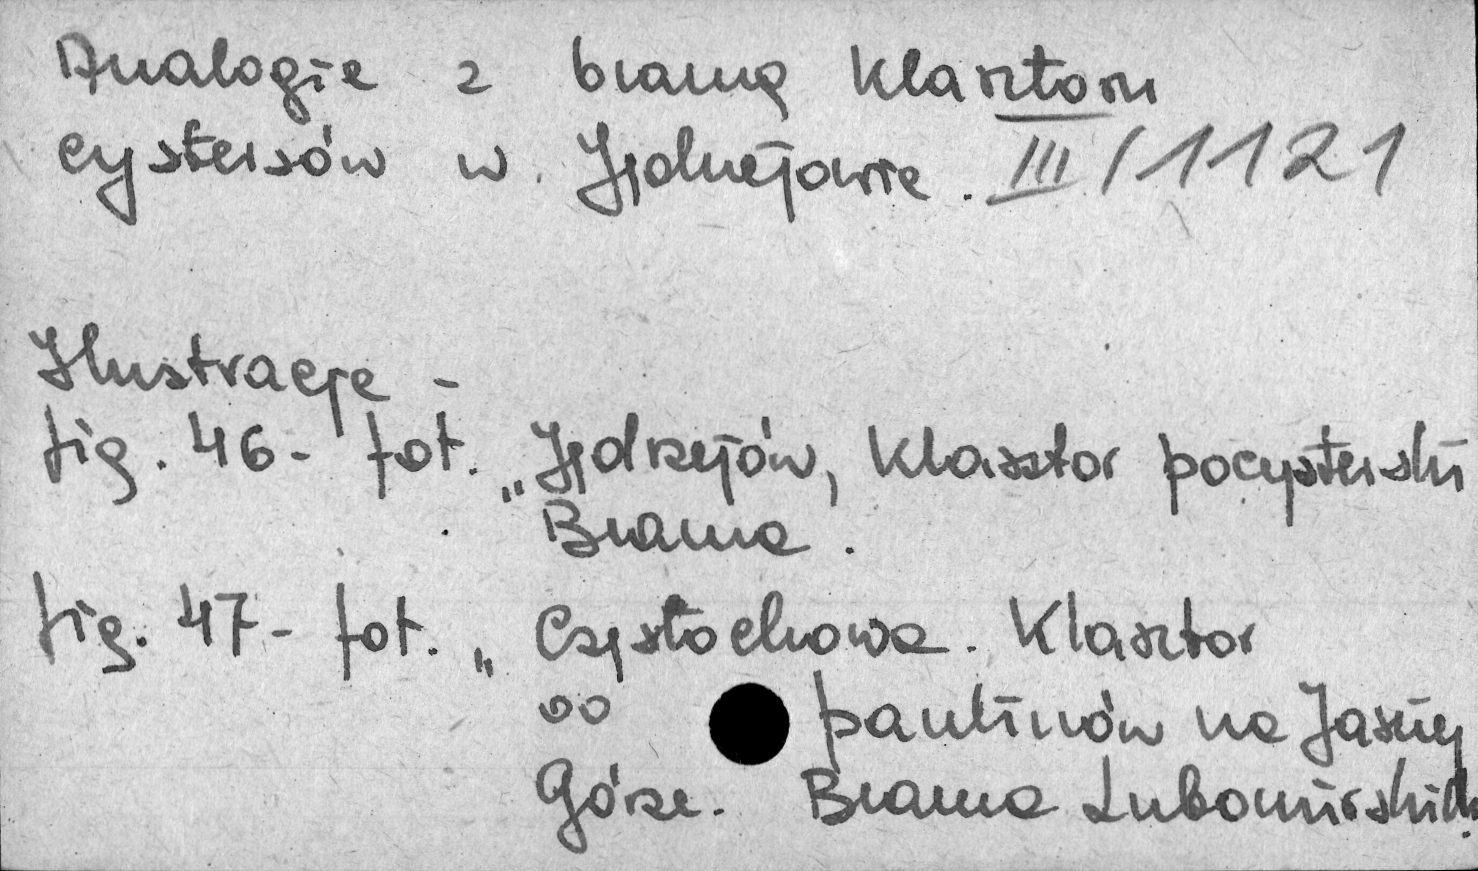 Analogie z bramą klasztoru
cystersów w Jędrzejowie. III/1121
Ilustracje -
fig. 46 - fot. „Jędrzejów, Klasztor pocysterski
Brama.
fig. 47 - fot. „Częstochowa. Klasztor
oo paulinów na Jasnej
Górze. Brama Lubomirskich.